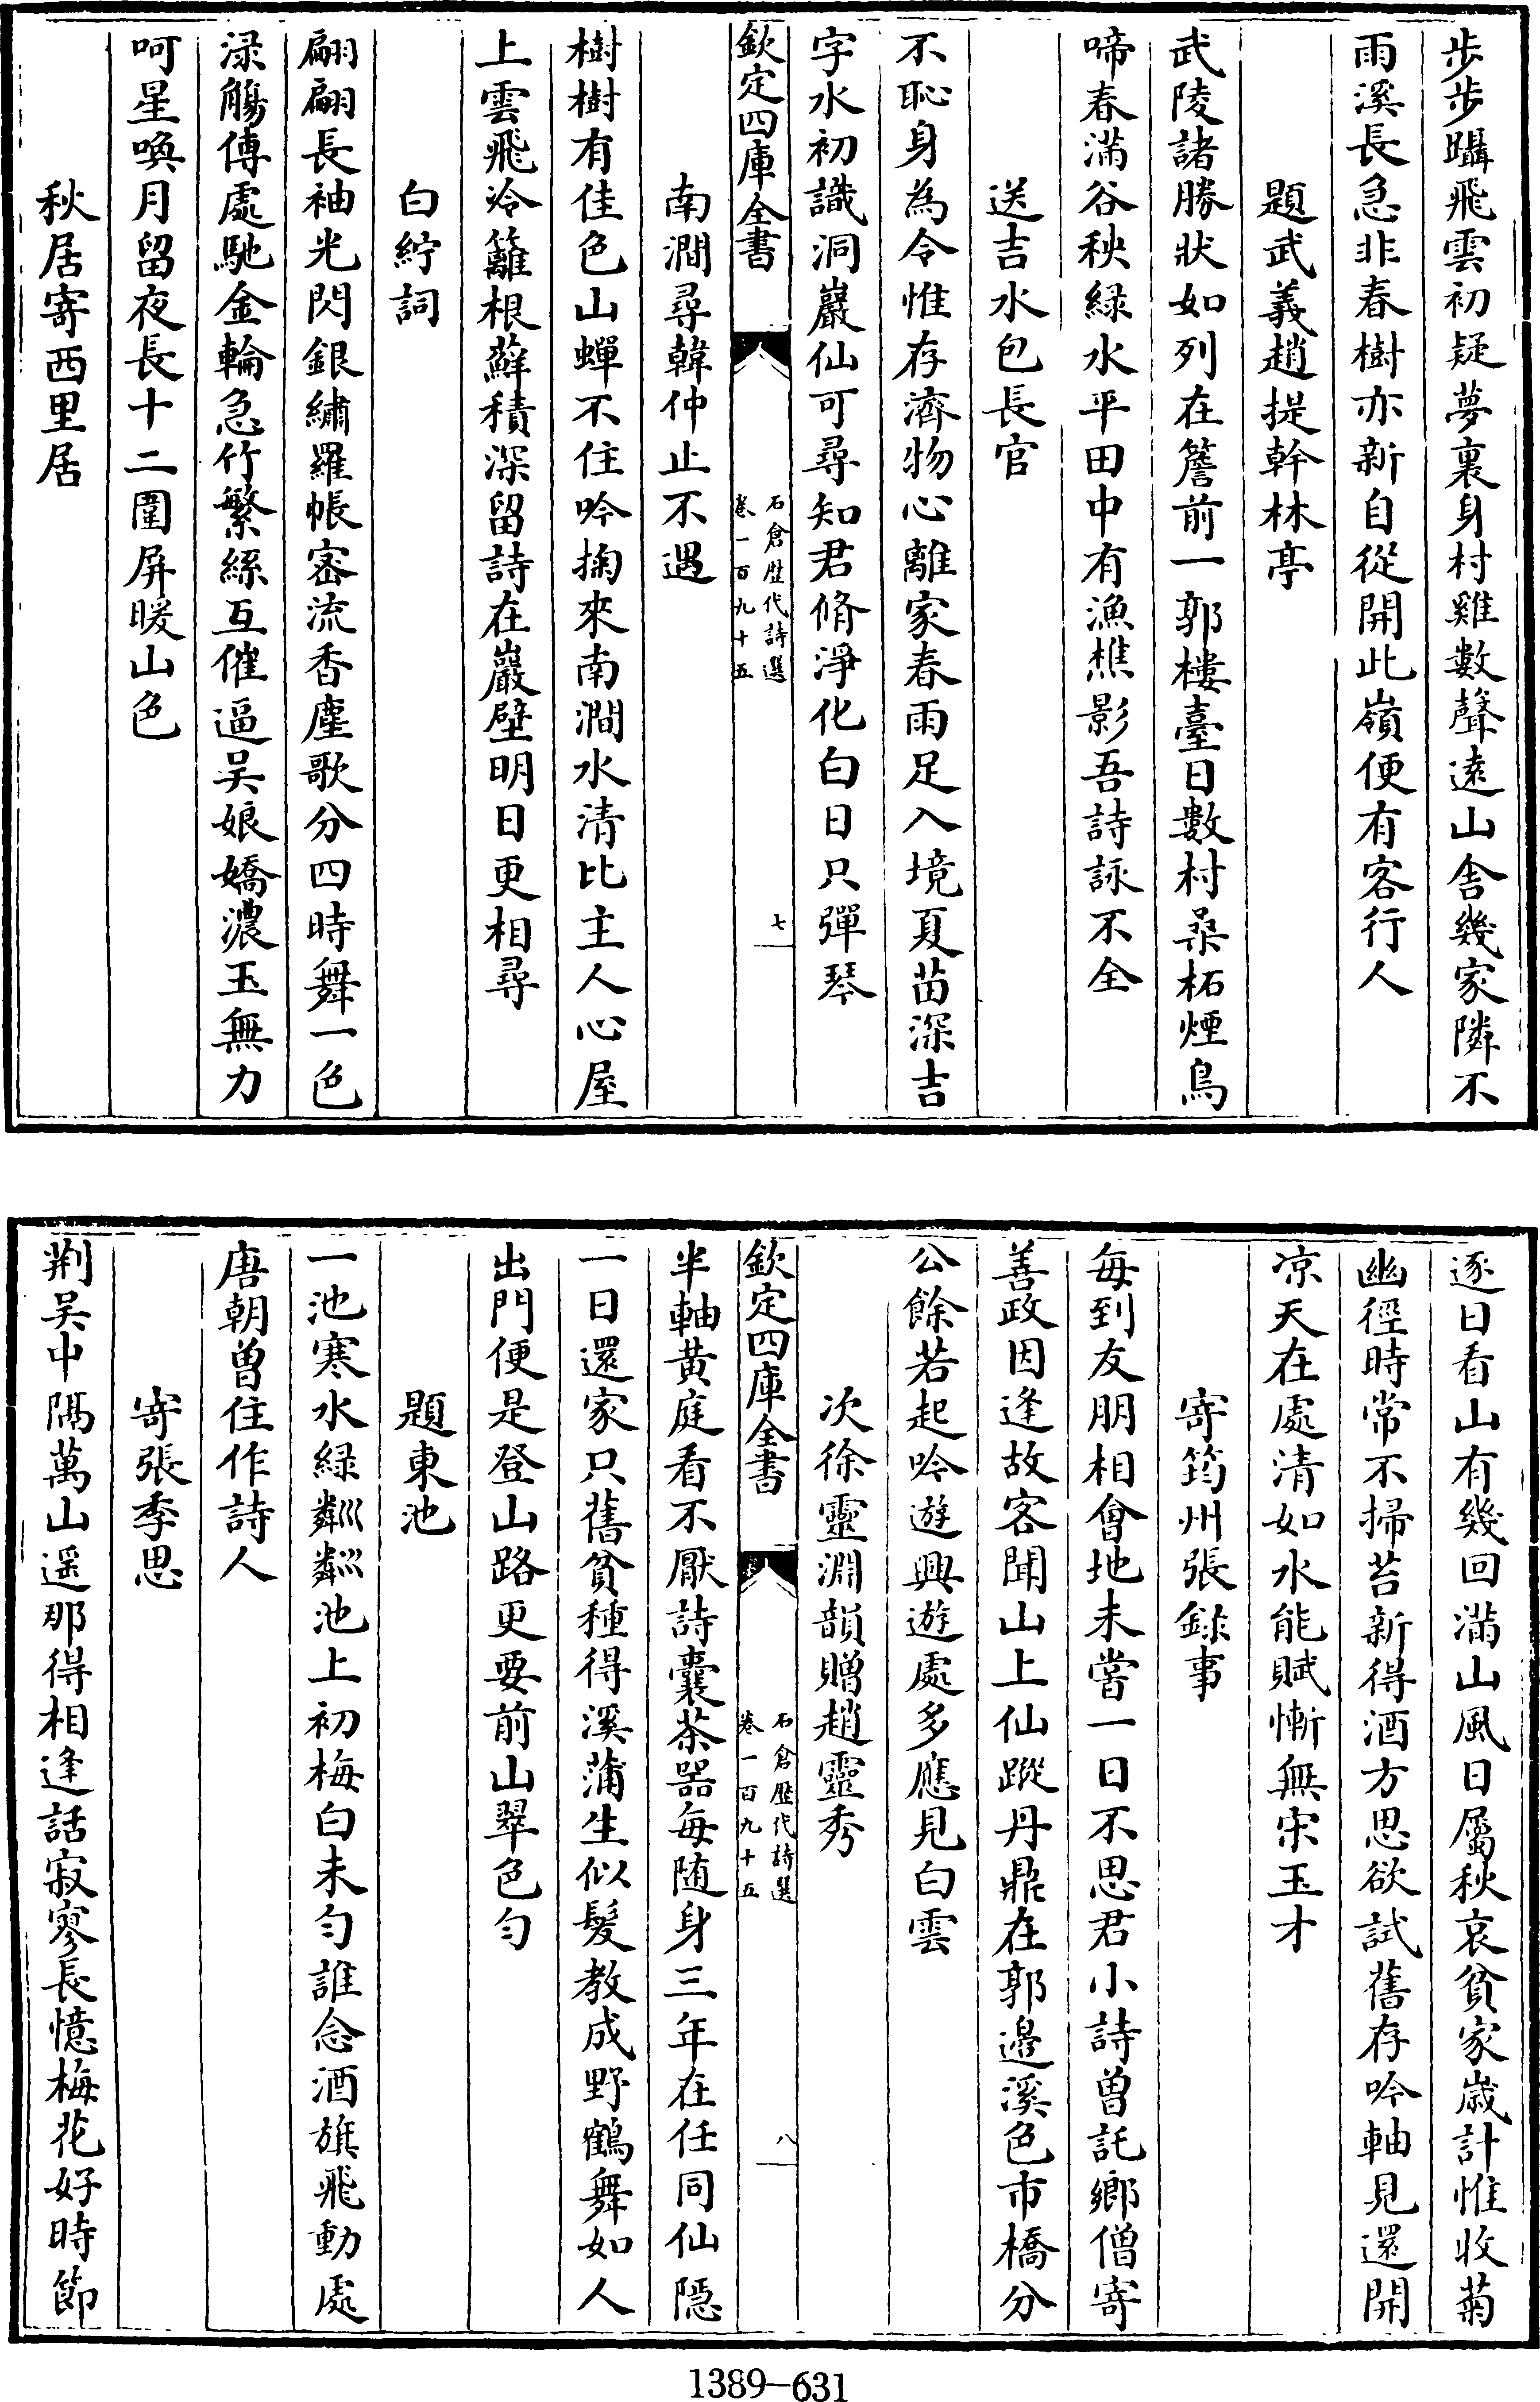 步步躡飛雲初疑夢裏身村雞數聲遠山舎幾家隣不
雨溪長急非春樹亦新自從開此嶺便有客行人
題武義趙提幹林亭
武陵諸勝狀如列在簷前一郭樓臺日數村桑柘煙鳥
啼春滿谷秧緑水平田中有漁樵影吾詩詠不全
送吉水包長官
不恥身為令惟存濟物心離家春雨足入境夏苗深吉
字水初識洞巖仙可尋知君脩淨化白日只彈琴
欽定四庫全書
石倉歴代詩選
卷一百九十五
七
南澗尋韓仲止不遇
樹樹有佳色山蟬不住吟掬來南澗水清比主人心屋
上雲飛冷籬根蘚積深留詩在巖壁明日更相尋
白紵詞
翩翩長袖光閃銀繡羅帳宻流香塵歌分四時舞一色
渌觴傳處馳金輪急竹繁絲互催逼吴娘嬌濃玉無力
呵星喚月留夜長十二圍屏暖山色
秋居寄西里居
逐日看山有幾回滿山風日屬秋哀貧家嵗計惟收菊
幽徑時常不掃苔新得酒方思欲試舊存吟軸見還開
凉天在處清如水能賦慚無宋玉才
寄筠州張錄事
每到友朋相會地未嘗一日不思君小詩曽託鄉僧寄
善政因逢故客聞山上仙蹤丹鼎在郭邉溪色市橋分
公餘若起吟遊興遊處多應見白雲
次徐靈淵韻贈趙靈秀
欽定四庫全書
石倉歴代詩選
卷一百九十五
八
半軸黄庭看不厭詩囊茶器每随身三年在任同仙隠
一日還家只舊貧種得溪蒲生似髮教成野鶴舞如人
出門便是登山路更要前山翠色勻
題東池
一池寒水緑粼粼池上初梅白未勻誰念酒旗飛動處
唐朝曽住作詩人
寄張季思
荆吴中隔萬山遥那得相逢話寂寥長憶梅花好時節
1389-631